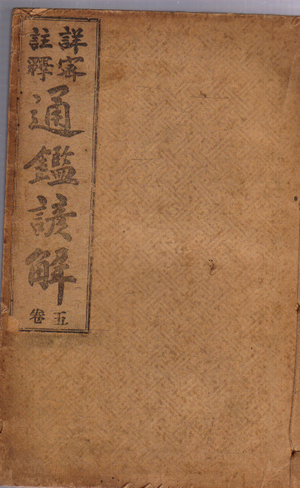 詳密
註釋
通鑑諺解
卷五